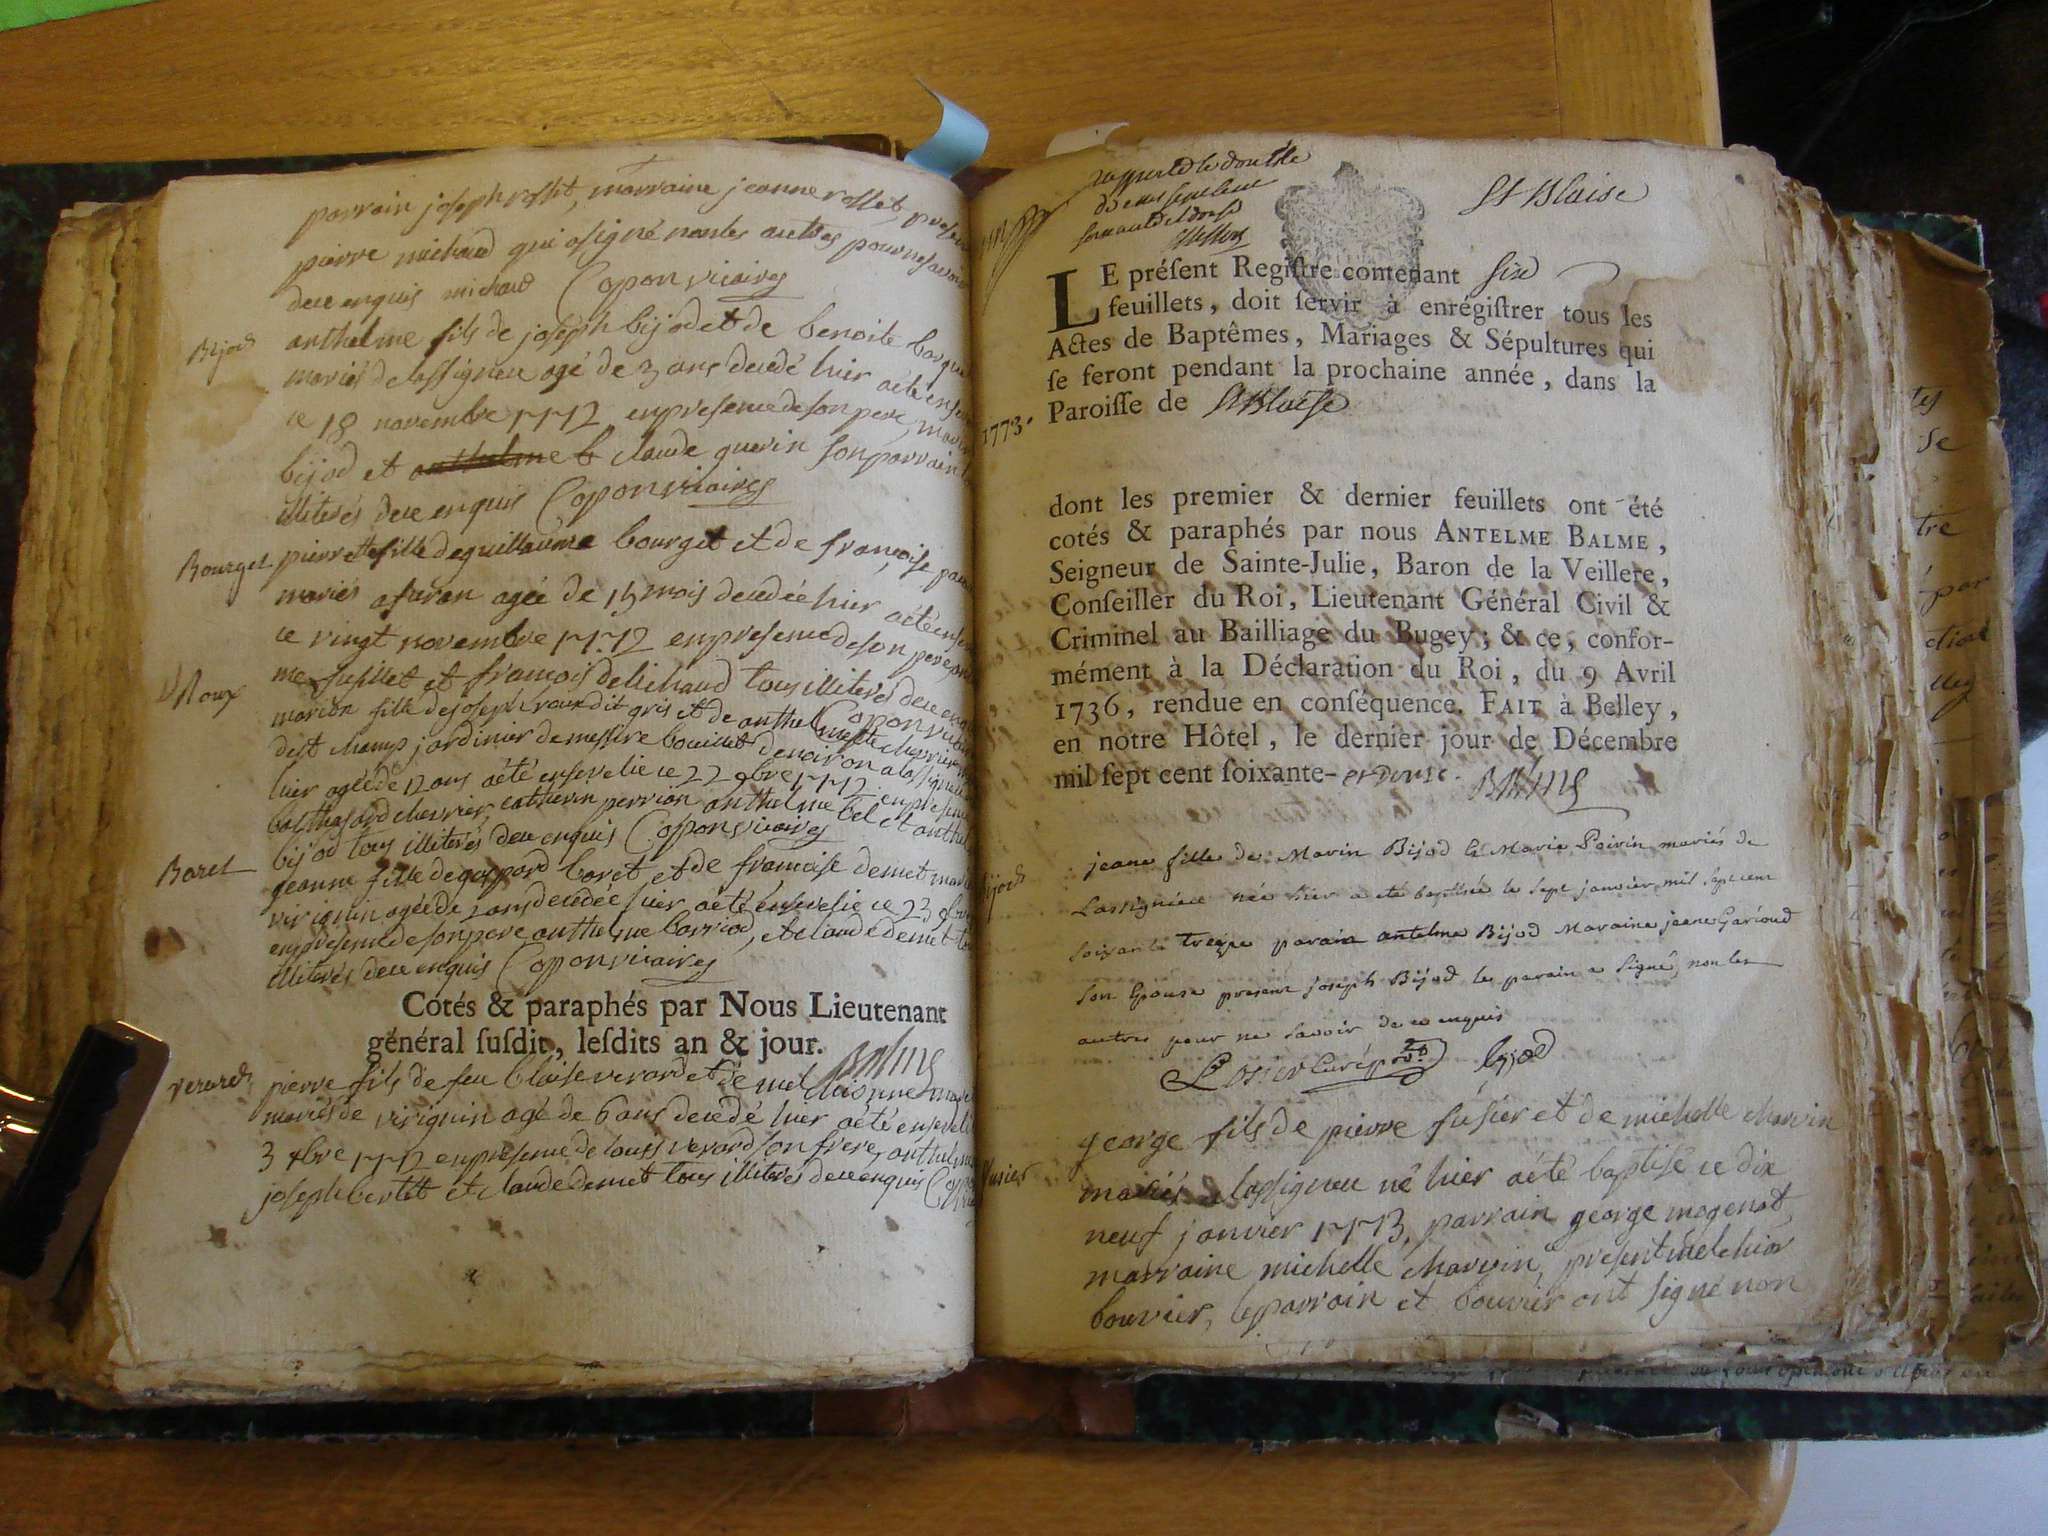 parrain joseph rollet, marraine jeanne rollet, presens
pierre michaud qui a signé non les autres pour ne savoir
de ce enquis michaud Copon vicaire
Bijod
anthelme fils de joseph bijod et de benoite
mariés de lassignieu agé de 3 ans decedé hier a été
ce 18 novembre 1772 en presence de son pere,
bijod et anthelme b claude guerin son parrain
illiterés de ce enquis Copon vicaire
Bourget
pierrette fille de guillaume bourget et de françoise
mariés a furan agée de 15 mois decedée hier a été
ce vingt novembre 1772 en presence de son pere
me fusillet et françois delichaud tous illiterés de ce
Copon
Roux
marion fille de joseph roux dit gris et de anthelmette cherrier
dest champ jardinier de messire bouillet de noiron a lassignieu
hier agée de 12 ans a été ensevelie ce 22 9bre 1772 en presence
balthasard cherrier, catherin perrion anthelme bel et
bijod tous illiterés de ce enquis Copon vicaire
Baret
jeanne fille de gaspard baret et de francoise demet
virignin agée de 2 ans decedée hier a été ensevelie ce 23
en presence de son pere anthelme barriod, et claude demet
illiterés de ce enquis Copon vicaire
Cotés & paraphés par Nous Lieutenant
général susdit, lesdits an & jour.
Balme
verard
pierre fils de feu blaise verard et de
mariés de virignin agé de 6 ans decedé hier a été enseveli
3 xbre 1772 en presence de louis verard son frere,
joseph bertet et claude demet tous illiterés de ce enquis
rapporté le double
St Blaise
LE préſent Regiſtre contenant six
feuillets, doit ſervir à enrégiſtrer tous les
Actes de Baptêmes, Mariages & Sépultures qui
ſe feront pendant la prochaine année, dans la
1773.
Paroiſſe de St Blaise
dont les premier & dernier feuillets ont été
cotés & paraphés par nous ANTELME BALME,
Seigneur de Sainte-Julie, Baron de la Veillere,
Conſeiller du Roi, Lieutenant Général Civil &
Criminel au Bailliage du Bugey; & ce, confor-
mément à la Déclaration du Roi, du 9 Avril
1736, rendue en conſéquence. FAIT à Belley,
en notre Hôtel, le dernier jour de Décembre
mil ſept cent ſoixante- et douze. Balme
Bijod
jeane fille de Marin Bijod & Marie Poirin mariés de
Lassignieu née hier a eté baptisée le sept janvier mil sept cent
soixante treize parain antelme Bijod Maraine jeane Garioud
son Epouse present joseph Bijod le parain a signé, non les
autres pour ne savoir de ce enquis
Bijod
fusier
george fils de pierre fusier et de michelle charvin
mariés a lassignieu né hier a été baptisé ce dix
neuf janvier 1773, parrain george magenot,
marraine michelle charvin, present melchior
bouvier, le parrain et bouvier ont signé non